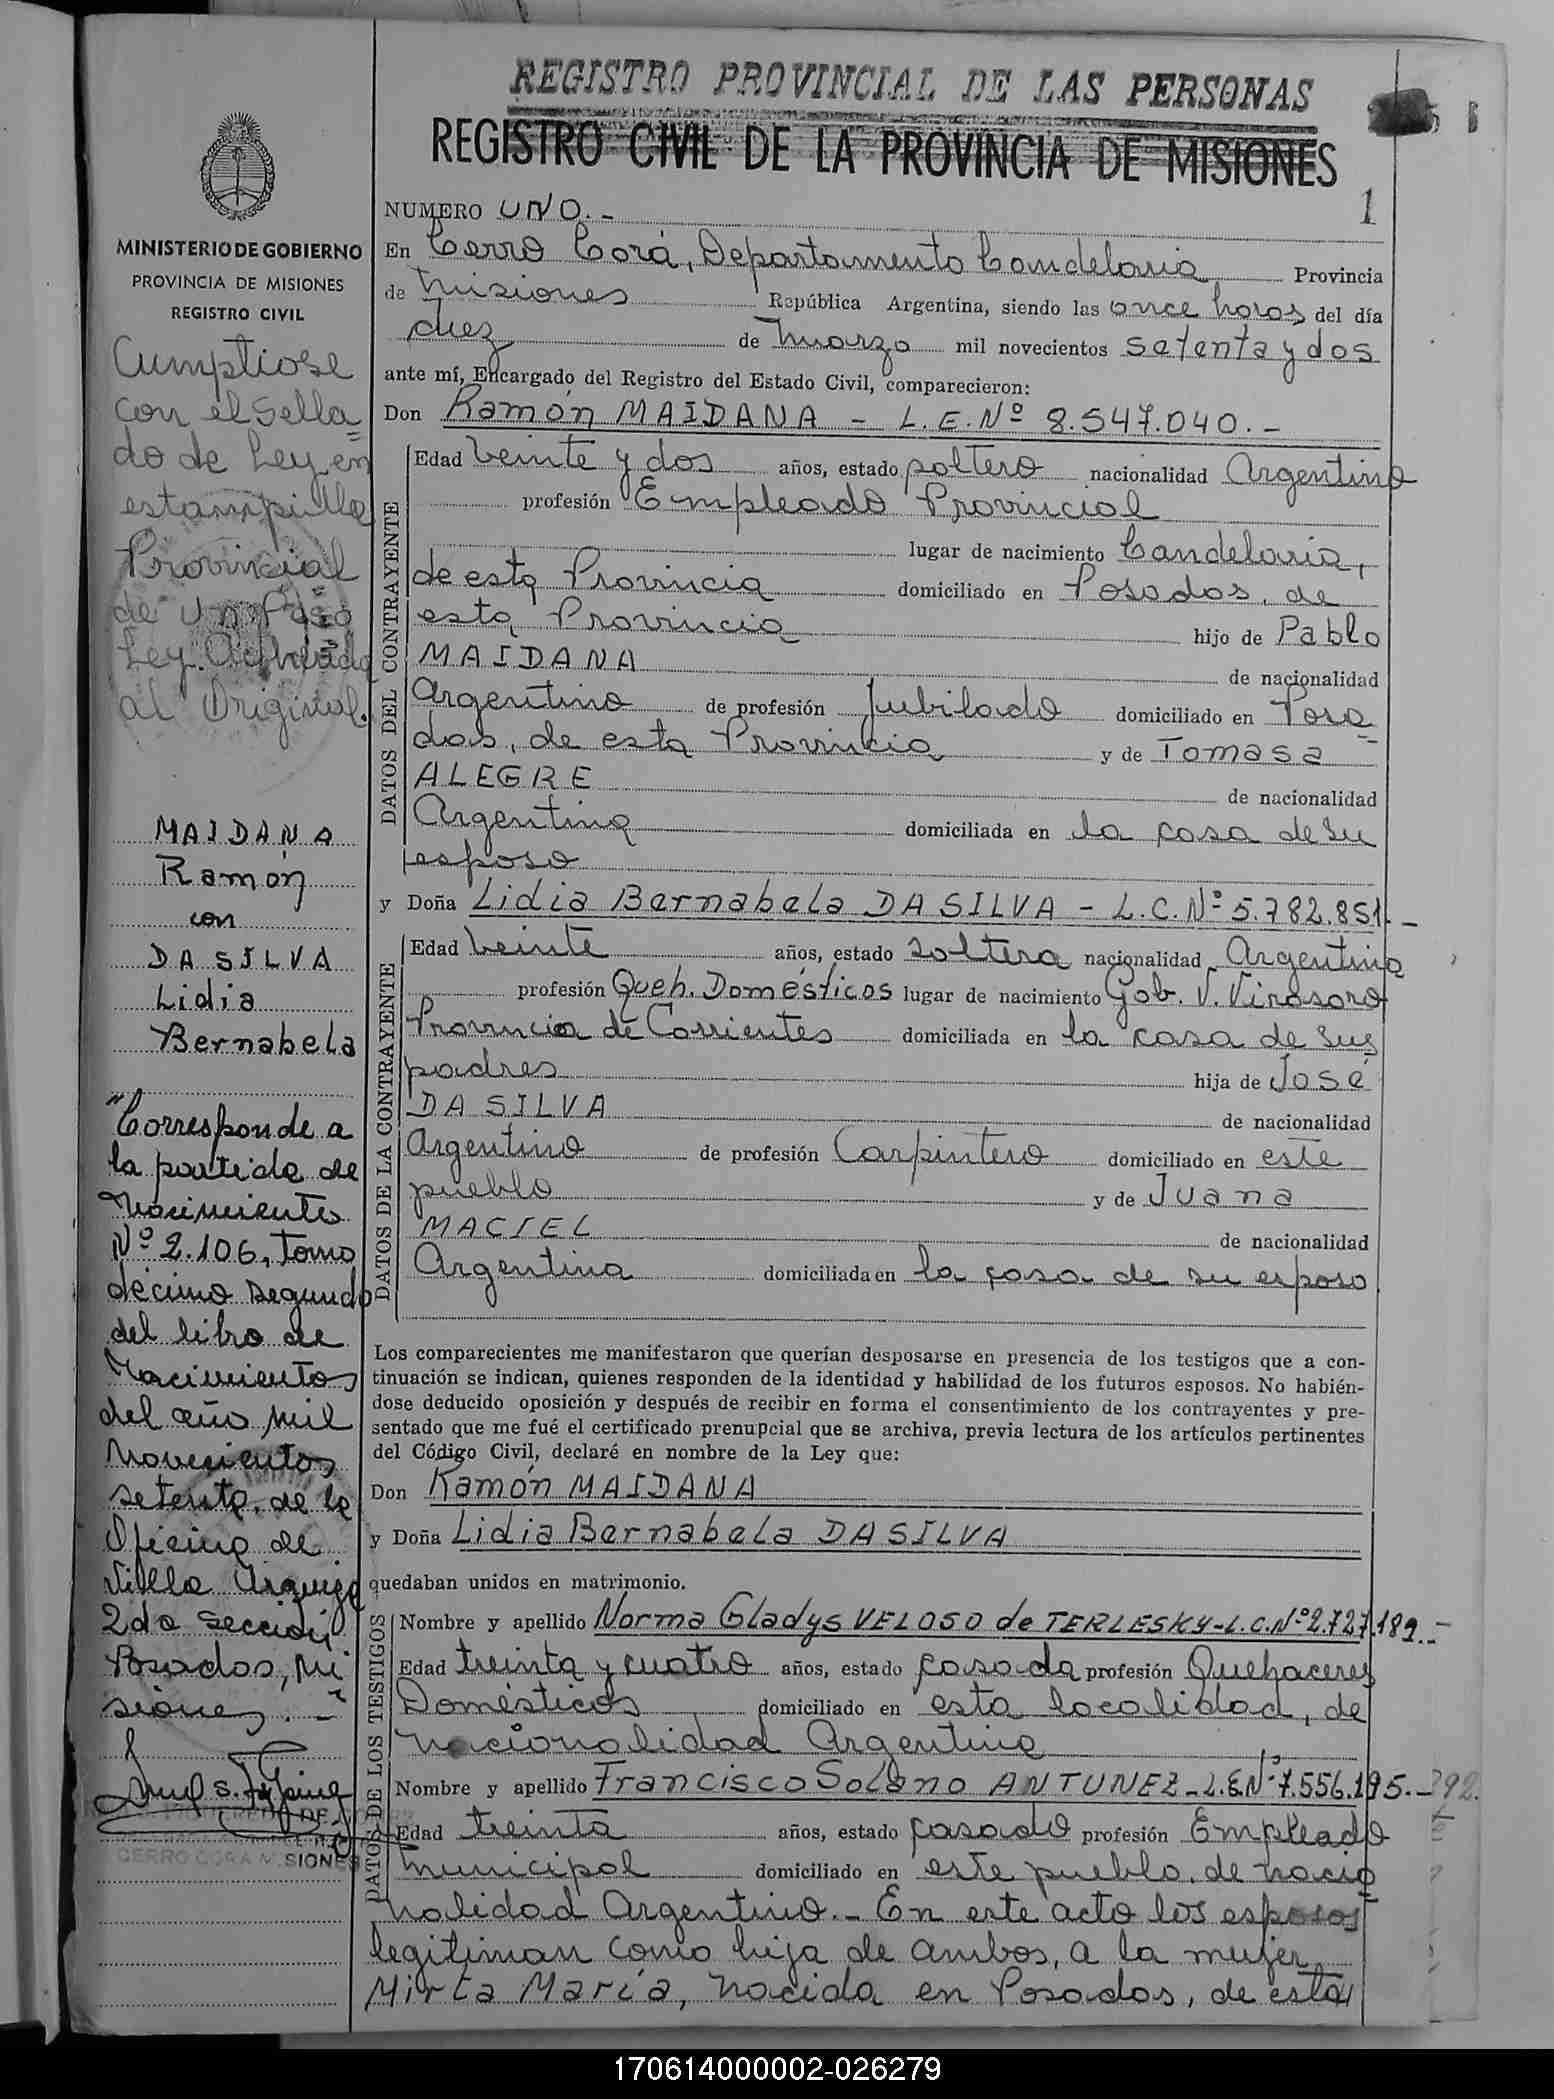 REGISTRO PROVINCIAL DE LAS PERSONAS
REGISTRO CIVIL DE LA PROVINCIA DE MISIONES
1
MINISTERIO DE GOBIERNO
PROVINCIA DE MISIONES
REGISTRO CIVIL
Cumptiose
con el Sella=
do de Ley en
estampilla
Provincial
de Un Peso
Ley. Adherida
al Original.
MAIDANA
Ramón
con
DA SILVA
Lidia
Bernabela
"Corresponde a
la partida de
Nacimiento
Nº 2.106, Tomo
décimo segundo
del libro de
Nacimientos
del año mil
novecientos
setenta, de la
Oficina de
Villa Urquiza
2da Sección
Posadas, Mi=
siones. -
CERRO CORA MISIONES
NUMERO UNO. -
En Cerro Corá, Departamento Candelaria Provincia
de Misiones República Argentina, siendo las once horas del día
diez de Marzo mil novecientos setenta y dos
ante mí, Encargado del Registro del Estado Civil, comparecieron:
Don Ramón MAIDANA - L.E.Nº 8.547.040. -
DATOS DEL CONTRAYENTE
Edad veinte y dos años, estado soltero nacionalidad Argentino
profesión Empleado Provincial
lugar de nacimiento Candelaria,
de esta Provincia domiciliado en Posadas, de
esta Provincia hijo de Pablo
MAIDANA de nacionalidad
Argentino de profesión Jubilado domiciliado en Posa=
das, de esta Provincia y de Tomasa
ALEGRE de nacionalidad
Argentina domiciliada en la casa de su
esposo
y Doña Lidia Bernabela DA SILVA - L.C.Nº 5.782.851. -
DATOS DE LA CONTRAYENTE
Edad veinte años, estado soltera nacionalidad Argentina
profesión Queh. Domésticos lugar de nacimiento Gob. V. Virasoro
Provincia de Corrientes domiciliada en la casa de sus
padres hija de José
DA SILVA de nacionalidad
Argentino de profesión Carpintero domiciliado en este
pueblo y de Juana
MACIEL de nacionalidad
Argentina domiciliada en la casa de su esposo
Los comparecientes me manifestaron que querían desposarse en presencia de los testigos que a con-
tinuación se indican, quienes responden de la identidad y habilidad de los futuros esposos. No habién-
dose deducido oposición y después de recibir en forma el consentimiento de los contrayentes y pre-
sentado que me fué el certificado prenupcial que se archiva, previa lectura de los artículos pertinentes
del Código Civil, declaré en nombre de la Ley que:
Don Ramón MAIDANA
y Doña Lidia Bernabela DA SILVA
quedaban unidos en matrimonio.
DATOS DE LOS TESTIGOS
Nombre y apellido Norma Gladys VELOSO de TERLESKY-L.C.Nº2.727.189. -
Edad treinta y cuatro años, estado casada profesión Quehaceres
Domésticos domiciliado en esta localidad, de
nacionalidad Argentina
Nombre y apellido Francisco Solano ANTUNEZ-L.E.Nº7.556.195. -
Edad treinta años, estado casado profesión Empleado
Municipal domiciliado en este pueblo, de nacio=
nalidad Argentino. - En este acto los esposos
legitiman como hija de ambos, a la mujer
Mirta María, nacida en Posadas, de esta
170614000002-026279